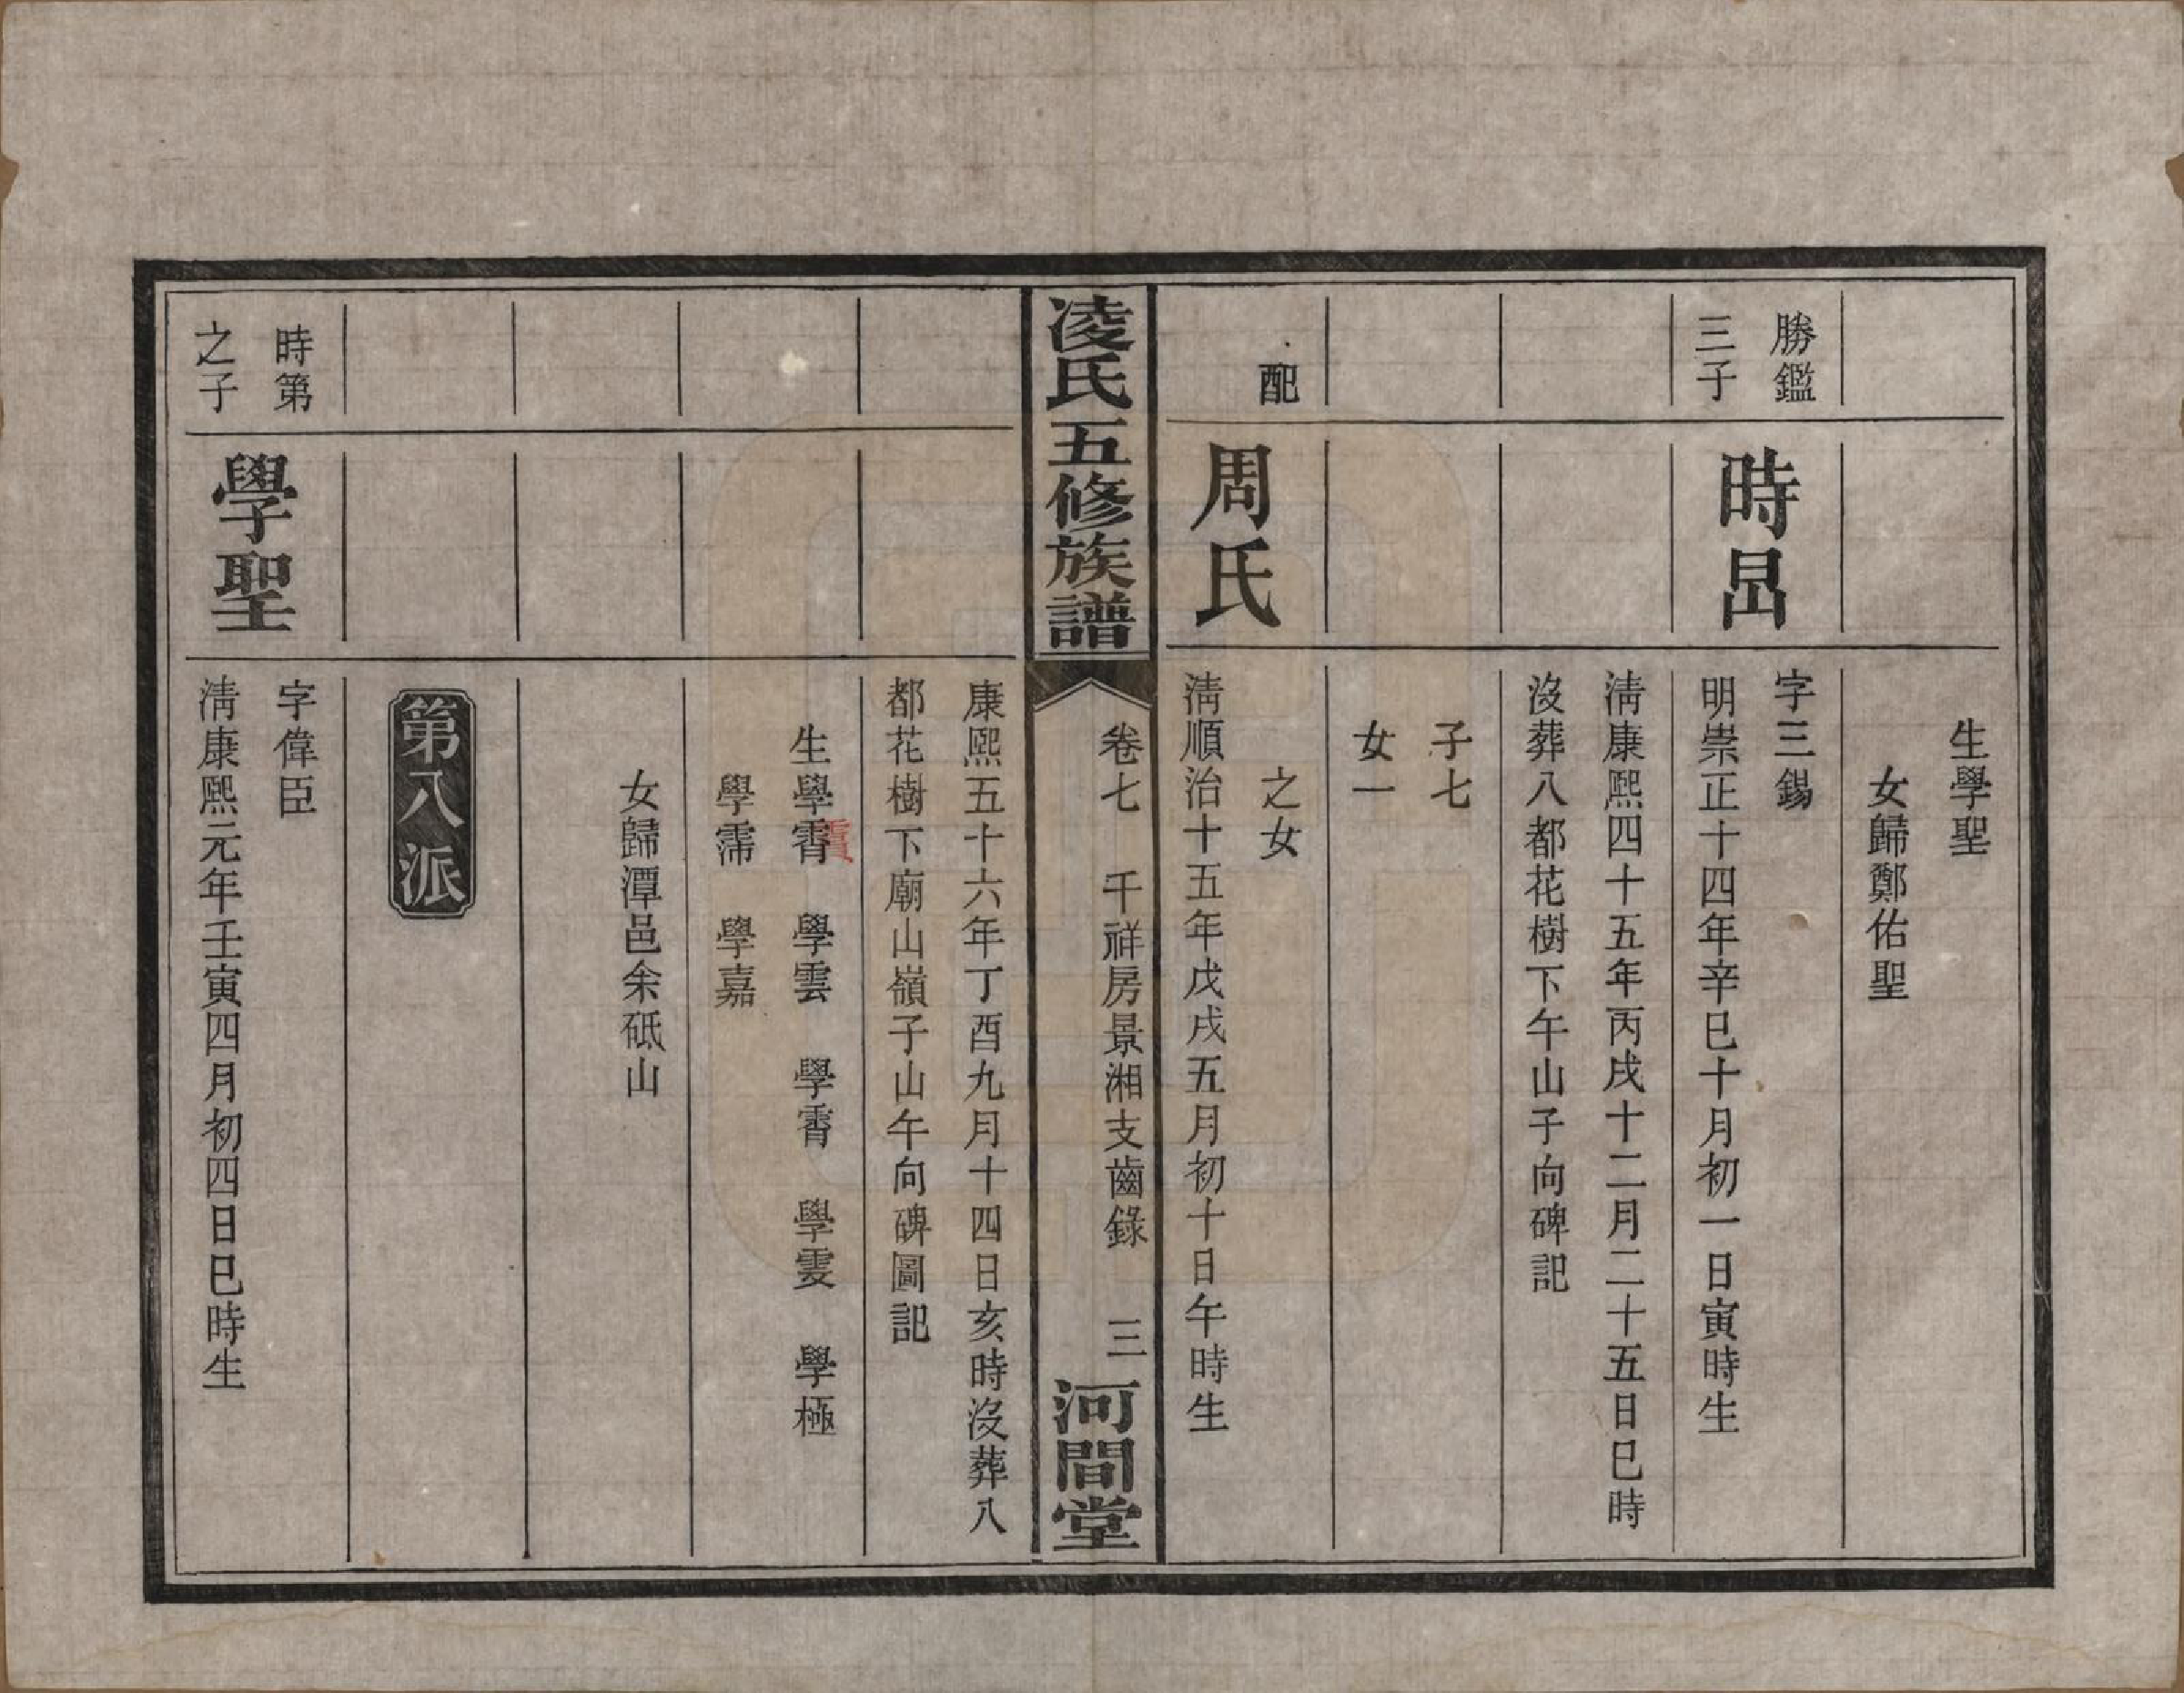 生學聖
女歸鄭佑聖
勝鑑
三子
時昌
字三錫
明崇正十四年辛巳十月初一日寅時生
清康熙四十五年丙戌十二月二十五日巳時
沒葬八都花樹下午山子向碑記
子七
女一
配
周氏
之女
清順治十五年戊戌五月初十日午時生
凌氏五修族譜
卷七 千祥房景湘支齒錄 三
河間堂
康熙五十六年丁酉九月十四日亥時沒葬八
都花樹下廟山嶺子山午向碑圖記
生學霄 學雲 學霄 學雯 學極
學霈 學嘉
女歸潭邑余砥山
第八派
時第
之子
學聖
字偉臣
清康熙元年壬寅四月初四日巳時生